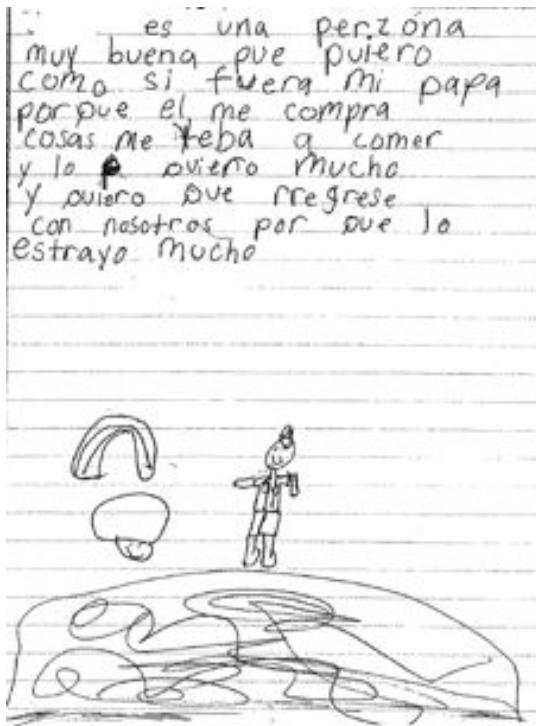 es una perzona
muy buena que quiero
como si fuera mi papa
porque el me compra
cosas me yeba a comer
y lo quiero mucho
y quiero que rregrese
con nosotros por que lo
estrayo mucho